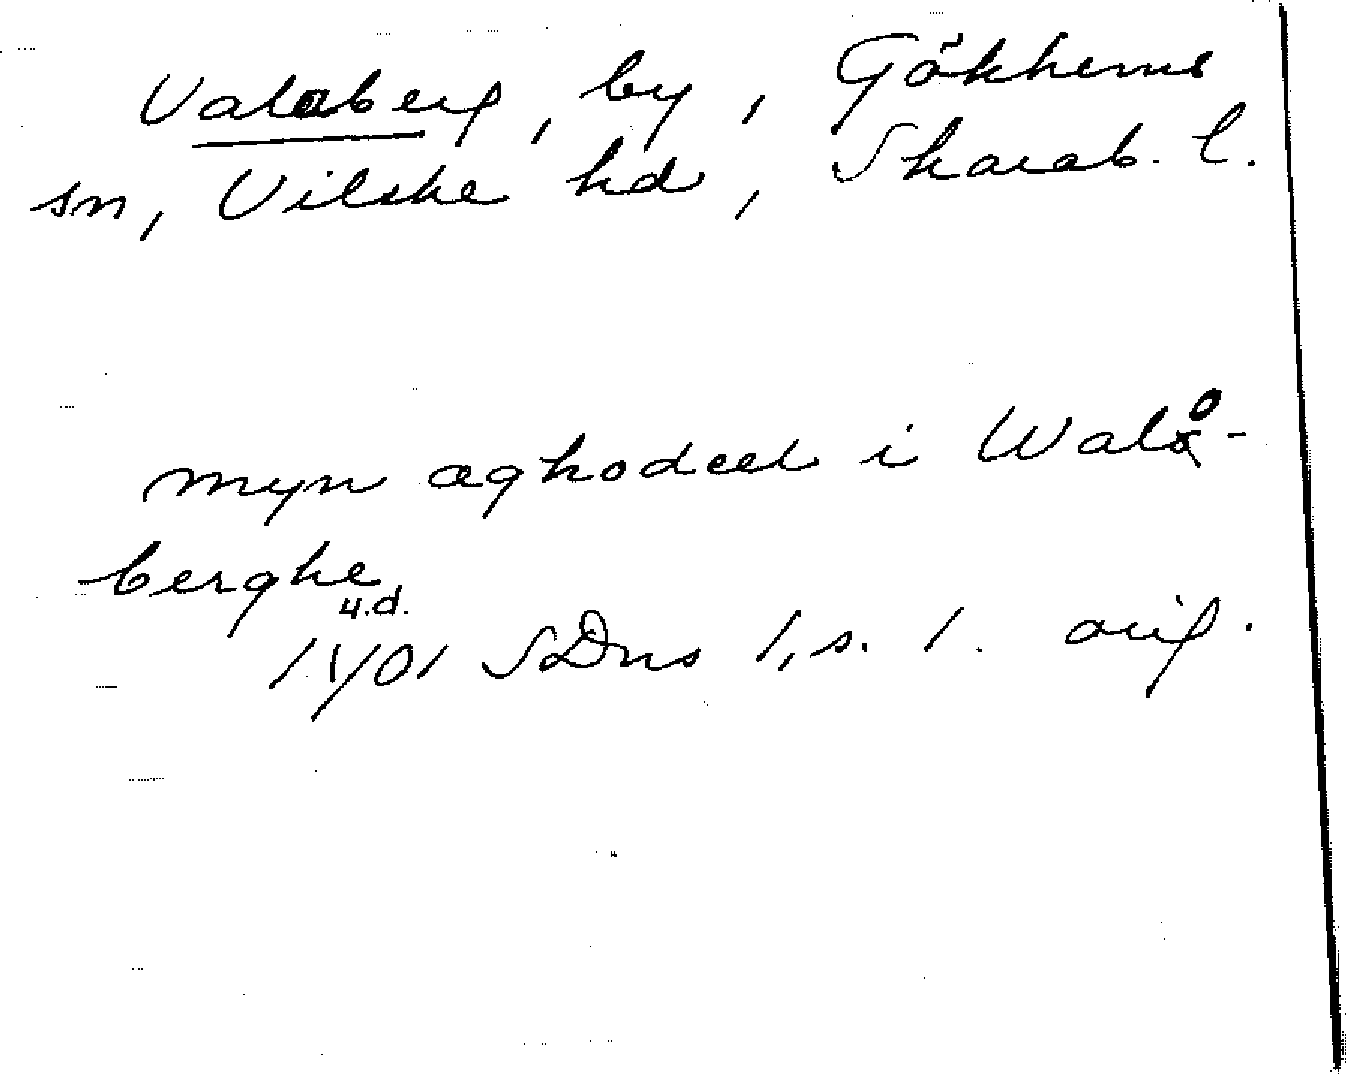 Valaberg, by, Gökhems
sn, Vilske hd, Skarab. l.
myn æghodeel i Walo-
berghe
u.d.
1401 SDns 1, s. 1. orig.